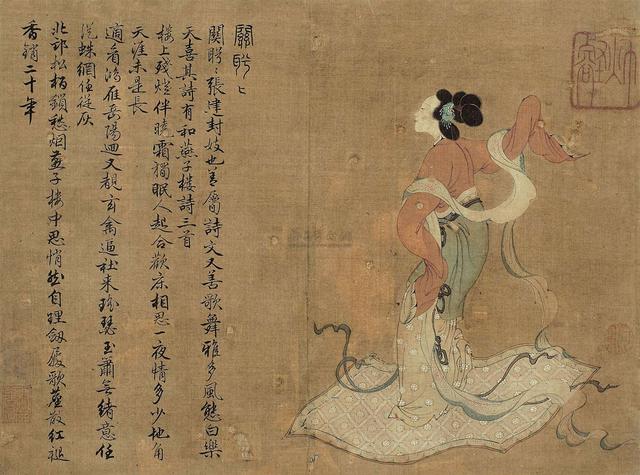 關盼〻
關盼〻張建封妓也善屬詩文又善歌舞雅多風態白樂
天喜其詩有和燕子樓詩三首
樓上殘燈伴曉霜獨眠人起合歡床相思一夜情多少地角
天涯未是長
適看鴻雁岳陽迴又覩玄禽逼社來瑤瑟玉蕭無緒意任
從蛛網任從灰
北邙松柏鎖愁烟燕子樓中思悄然自理劍履歌塵散紅褪
香銷二十年